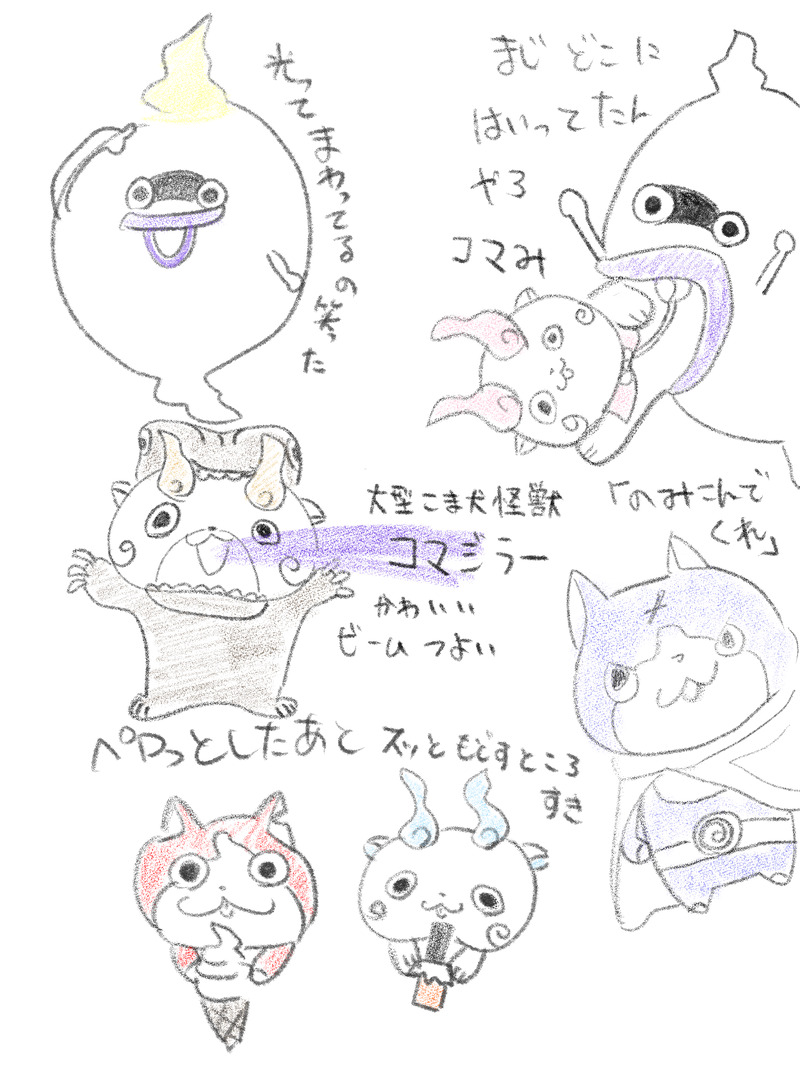 光ってまわってるの笑った
まじ どこに
はいってたん
やろ
コマみ
大型こま犬怪獣
コマジラー
かわいい
ビームつよい
「のみこんで
くれ」
ペロっとしたあと スッともどすところ
すき